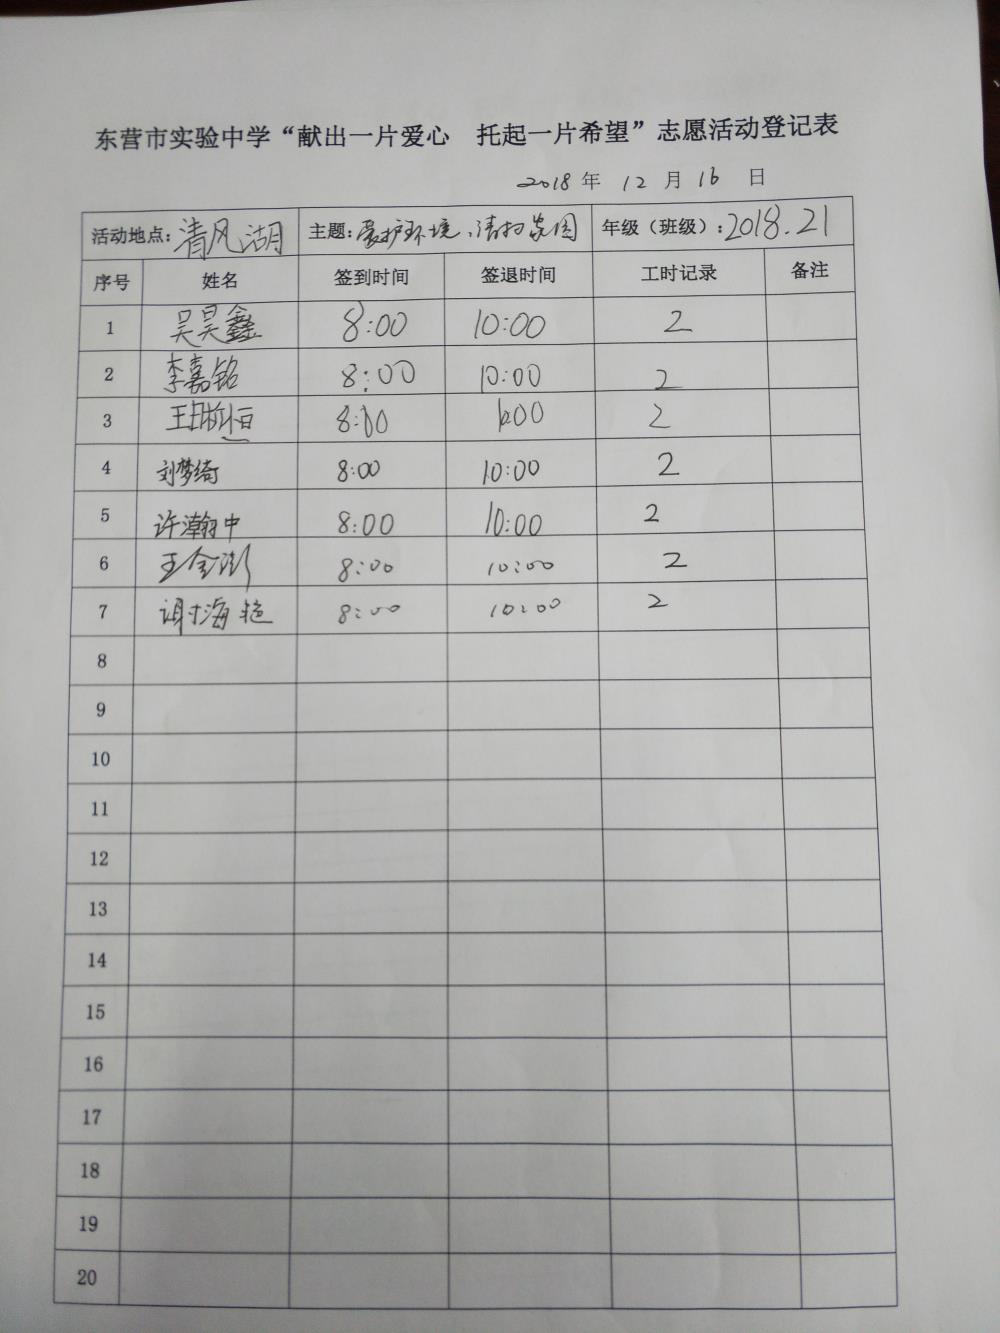 东营市实验中学“献出一片爱心 托起一片希望”志愿活动登记表
2018 年 12 月 16 日
活动地点: 清风湖 主题: 爱护环境、清扫家园 年级（班级）: 2018.21
序号 姓名 签到时间 签退时间 工时记录 备注
1 吴昊鑫 8:00 10:00 2
2 李嘉铭 8:00 10:00 2
3 8:00 10:00 2
4 刘梦绮 8:00 10:00 2
5 许瀚中 8:00 10:00 2
6 王金澎 8:00 10:00 2
7 8:00 10:00 2
8
9
10
11
12
13
14
15
16
17
18
19
20